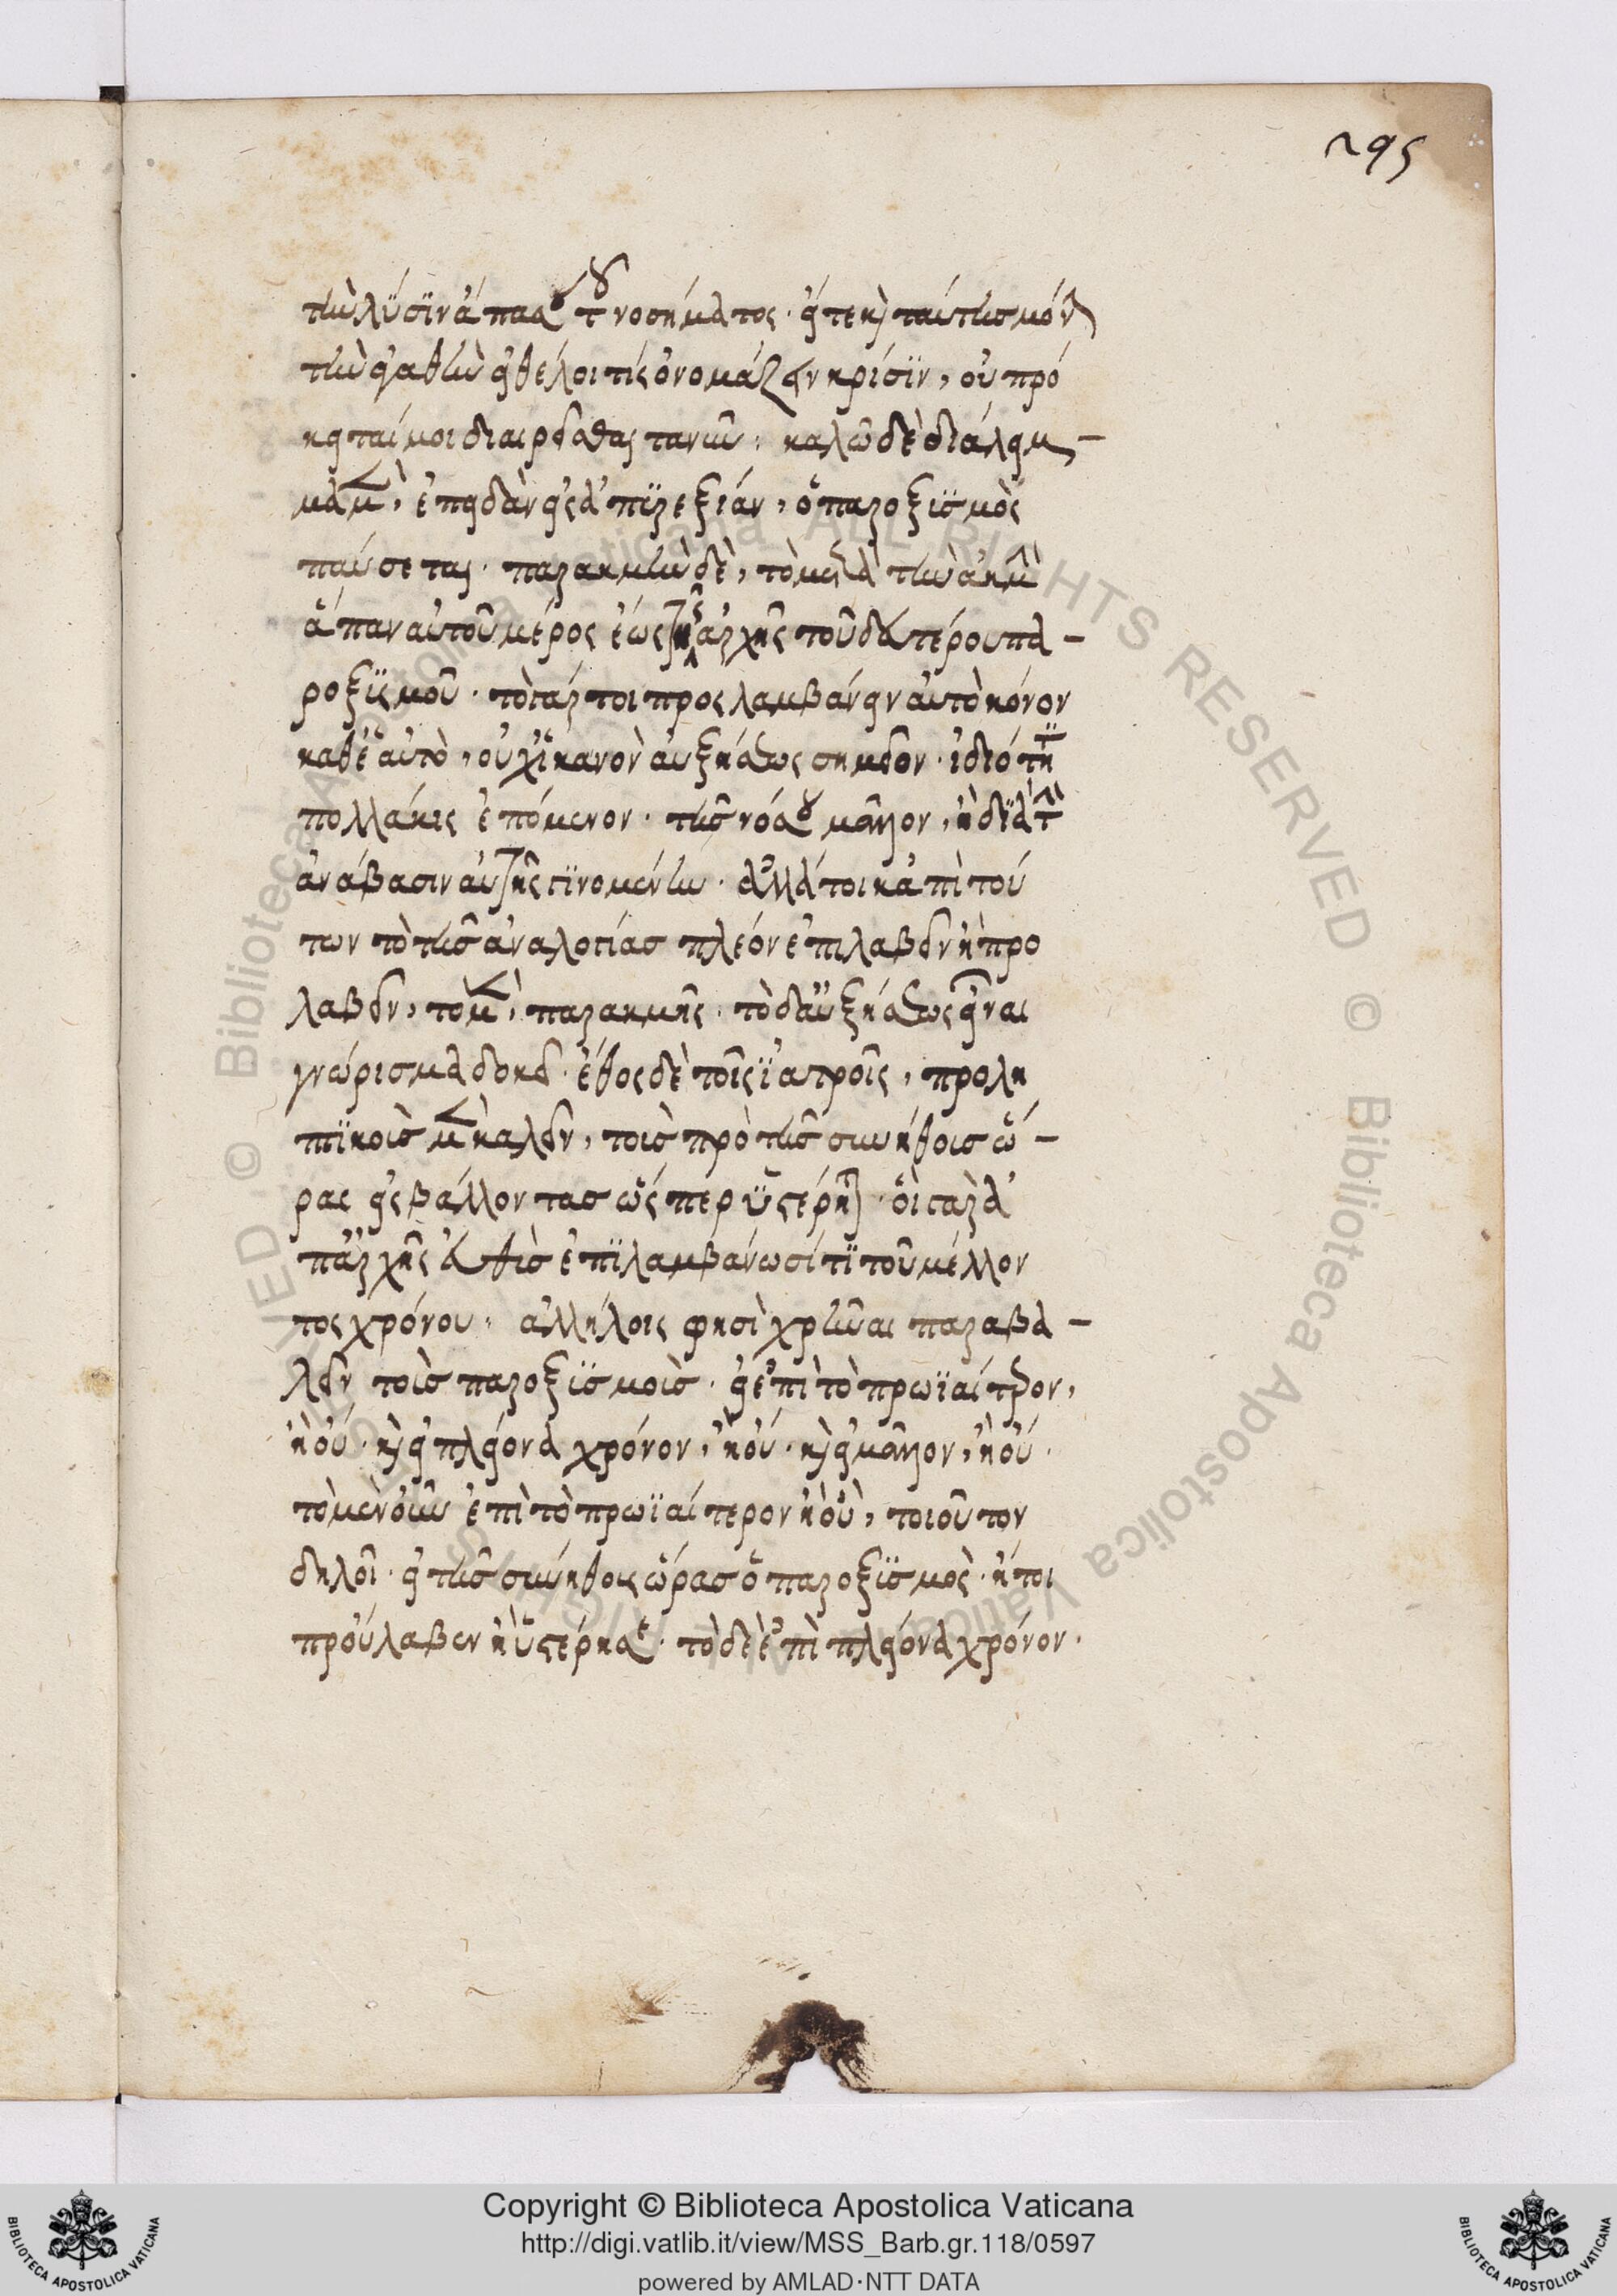 295
τὴν λύσιν ἅπασαν τοῦ νοσήματος· εἴτε καὶ ταύτης μόνην
τὴν ἀγαθὴν ἐθέλοι τίς ὀνομάζειν κρίσϊν, οὐ πρό
κειταί μοι διαιρεῖσθαι τανῦν· καλῶ δὲ διάλειμ-
μα μὲν, ἐπειδὰν εἰς ἀπϋρεξίαν, ὁ παροξϋσμὸς
παύσεται· παρακμὴν δὲ, τὸ μετὰ τὴν ἀκμὴν
ἅπαν αὐτοῦ μέρος ἕως τῆς ἀρχῆς τοῦ δευτέρου πα-
ροξϋσμοῦ· τὸ γάρ τοι προσλαμβάνειν αὐτὸ μόνον
καθ' ἑαυτὸ, οὐχ ἱκανὸν αὐξήσεως σημεῖον· ἰδιότητι
πολλάκις ἑπόμενον· τῆς νόσου μᾶλλον, ἢ διὰ τὴν
ἀνάβασιν αὐτῆς γινομένην· ἀλλά τοι κἀπὶ τού
των τὸ τῆς ἀναλογίας πλέον ἐπιλαβεῖν ἢ προ
λαβεῖν, τὸ μὲν, παρακμῆς· τὸ δ' αὐξήσεως εἶναι
γνώρισμα δοκεῖ· ἔθος δὲ τοῖς ϊατροῖς, προλη
πτικοὺς μὲν καλεῖν, τοὺς πρὸ τῆς συνήθους ὥ-
ρας εἰσβάλλοντας ὥσπερ ὑστερητικοὺς· οἳ γὰρ ἀ
π' ἀρχῆς αὖθις ἐπϊλαμβάνωσί τϊ τοῦ μέλλον
τος χρόνου· ἀλλήλοις φησὶ χρῆναι παραβα-
λεῖν τοὺς παροξϋσμοὺς· εἰ ἐπὶ τὸ πρωϊαίτερον,
ἢ οὔ· καὶ εἰ πλείονα χρόνον, ἢ οὔ· καὶ εἰ μᾶλλον, ἢ οὔ·
τὸ μὲν οὖν ἐπὶ τὸ πρωϊαίτερον ἢ οὒ, τοιοῦτον
δηλοῖ· εἰ τῆς συνήθους ὥρας ὁ παροξϋσμὸς· ἤτοι
προύλαβεν ἢ ὑστέρησε· τὸ δὲ ἐπὶ πλείονα χρόνον·
Copyright © Biblioteca Apostolica Vaticana
http://digi.vatlib.it/view/MSS_Barb.gr.118/0597
powered by AMLAD·NTT DATA